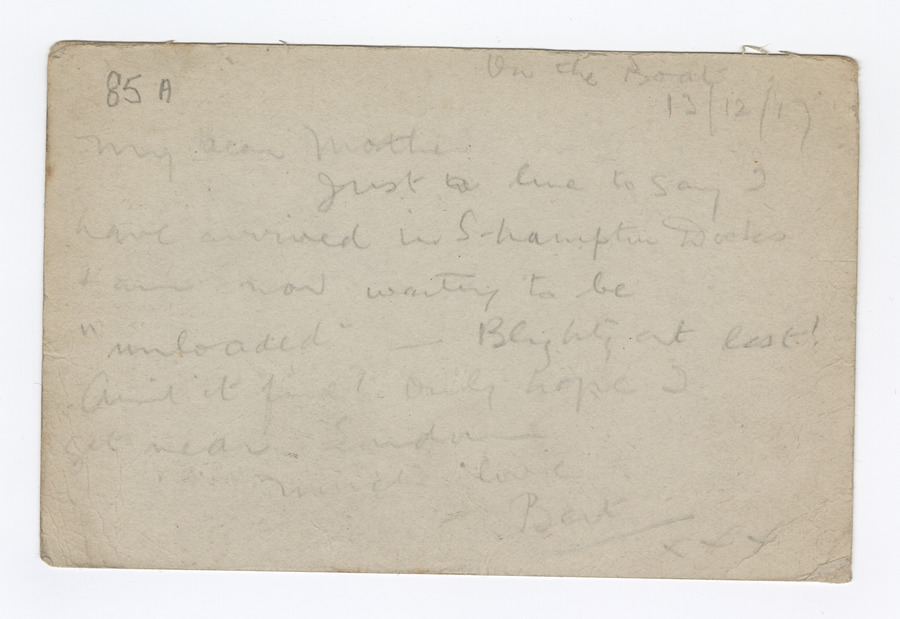 85 A
On the Boat
13/12/17
My dear Mother
Just a line to say I
have arrived in S-hampton Docks
& am now waiting to be
"unloaded" — Blighty at last!
Ain't it fine! Only hope I
get near London
Much love
Bert
x x x